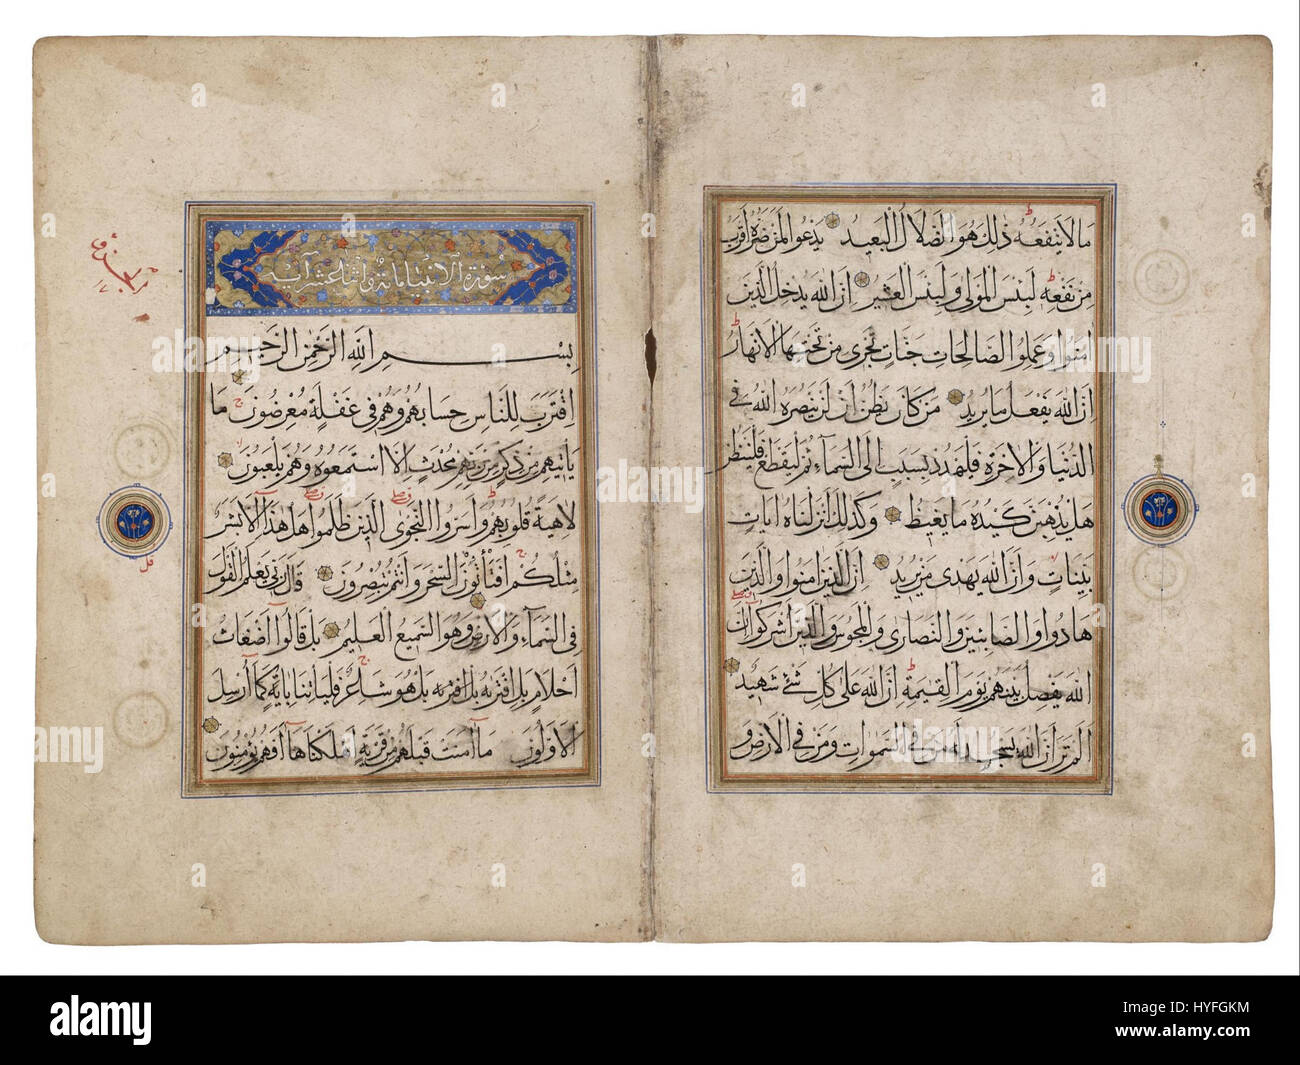 ما لا ينفعه ذلك هو الضلال البعيد يدعوا لمن ضره اقرب
من نفعه لبئس المولى ولبئس العشير ان الله يدخل الذين
امنوا وعملوا الصالحات جنات تجرى من تحتها الانهار
ان الله يفعل ما يريد من كان يظن ان لن ينصره الله فى
الدنيا والاخرة فليمدد بسبب الى السماء ثم ليقطع فلينظر
هل يذهبن كيده ما يغيظ وكذلك انزلناه ايات
بينات وان الله يهدى من يريد ان الذين امنوا والذين
هادوا والصابئين والنصارى والمجوس والذين اشركوا ان
الله يفصل بينهم يوم القيمة ان الله على كل شئ شهيد
الم تر ان الله يسجد له من فى السموات ومن فى الارض و
سورة الانبيا مائة واثنا عشر اية
بسم الله الرحمن الرحيم
اقترب للناس حسابهم وهم فى غفلة معرضون ما
ياتيهم من ذكر من ربهم محدث الا استمعوه وهم يلعبون
لاهية قلوبهم واسروا النجوى الذين ظلموا هل هذا الا بشر
مثلكم افتأتون السحر وانتم تبصرون قال ربى يعلم القول
فى السماء والارض وهو السميع العليم بل قالوا اضغاث
احلام بل افتريه بل هو شاعر فلياتنا باية كما ارسل
الاولون ما امنت قبلهم من قرية اهلكناها افهم يؤمنون
alamy
Image ID: HYFGKM
www.alamy.com